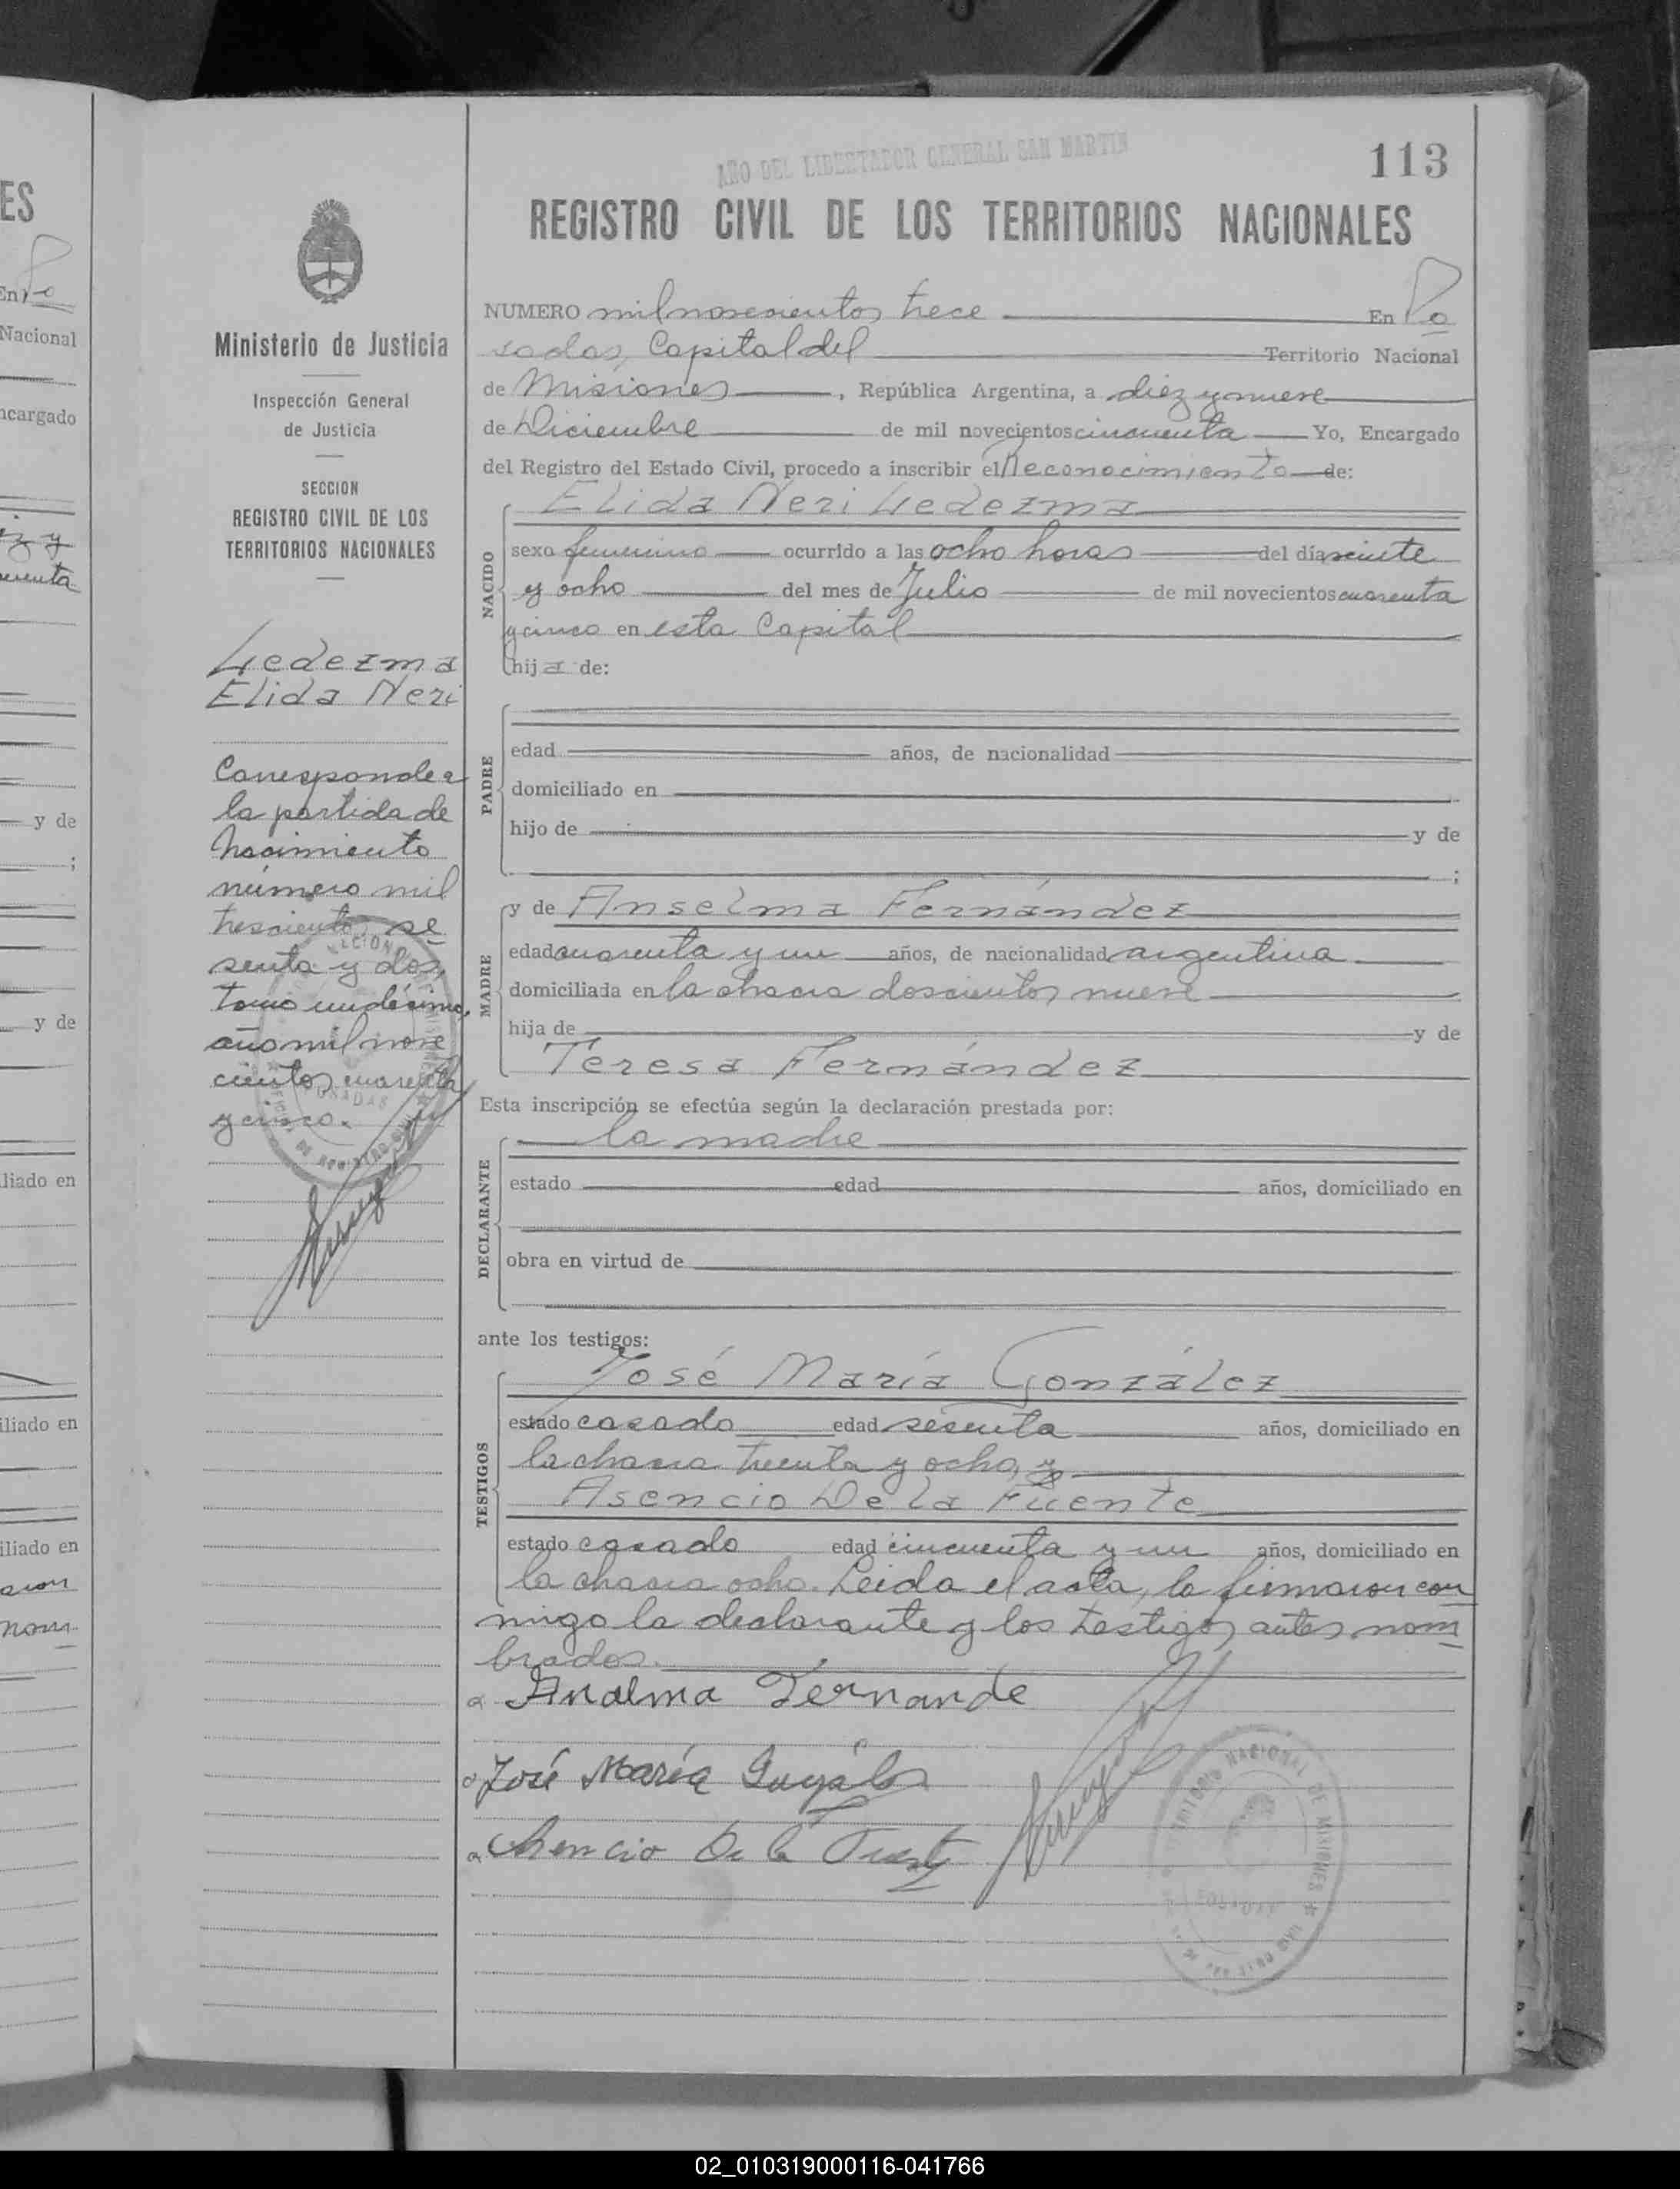 AÑO DEL LIBERTADOR GENERAL SAN MARTIN
113
REGISTRO CIVIL DE LOS TERRITORIOS NACIONALES
Ministerio de Justicia
Inspección General
de Justicia
SECCION
REGISTRO CIVIL DE LOS
TERRITORIOS NACIONALES
Ledezma
Elida Neri
Corresponde a
la partida de
Nacimiento
número mil
trescientos se
senta y dos,
tomo undécimo,
año mil nove
cientos cuarenta
y cinco.
NUMERO mil novecientos trece En Po
sadas, Capital del Territorio Nacional
de Misiones, República Argentina, a diez y nueve
de Diciembre de mil novecientos cincuenta Yo, Encargado
del Registro del Estado Civil, procedo a inscribir el Reconocimiento de:
NACIDO
Elida Neri Ledezma
sexo femenino ocurrido a las ocho horas del día veinte
y ocho del mes de Julio de mil novecientos cuarenta
y cinco en esta Capital
hija de:
PADRE
edad años, de nacionalidad
domiciliado en
hijo de y de
;
MADRE
y de Anselma Fernández
edad cuarenta y un años, de nacionalidad argentina
domiciliada en la chacra doscientos nueve
hija de y de
Teresa Fernández
Esta inscripción se efectúa según la declaración prestada por:
DECLARANTE
la madre
estado edad años, domiciliado en
obra en virtud de
ante los testigos:
TESTIGOS
José María González
estado casado edad sesenta años, domiciliado en
la chacra treinta y ocho, y
Asencio De la Fuente
estado casado edad cincuenta y un años, domiciliado en
la chacra ocho. Leida el acta, la firmaron con
migo la declarante y los testigos antes nom
brados.
Analma Fernande
José María
Asencio De la Fuente
TERRITORIO NACIONAL DE MISIONES
POSADAS
ES
En Po
Nacional
ncargado
iz y
y de
;
y de
liado en
iliado en
iliado en
nom
02_010319000116-041766